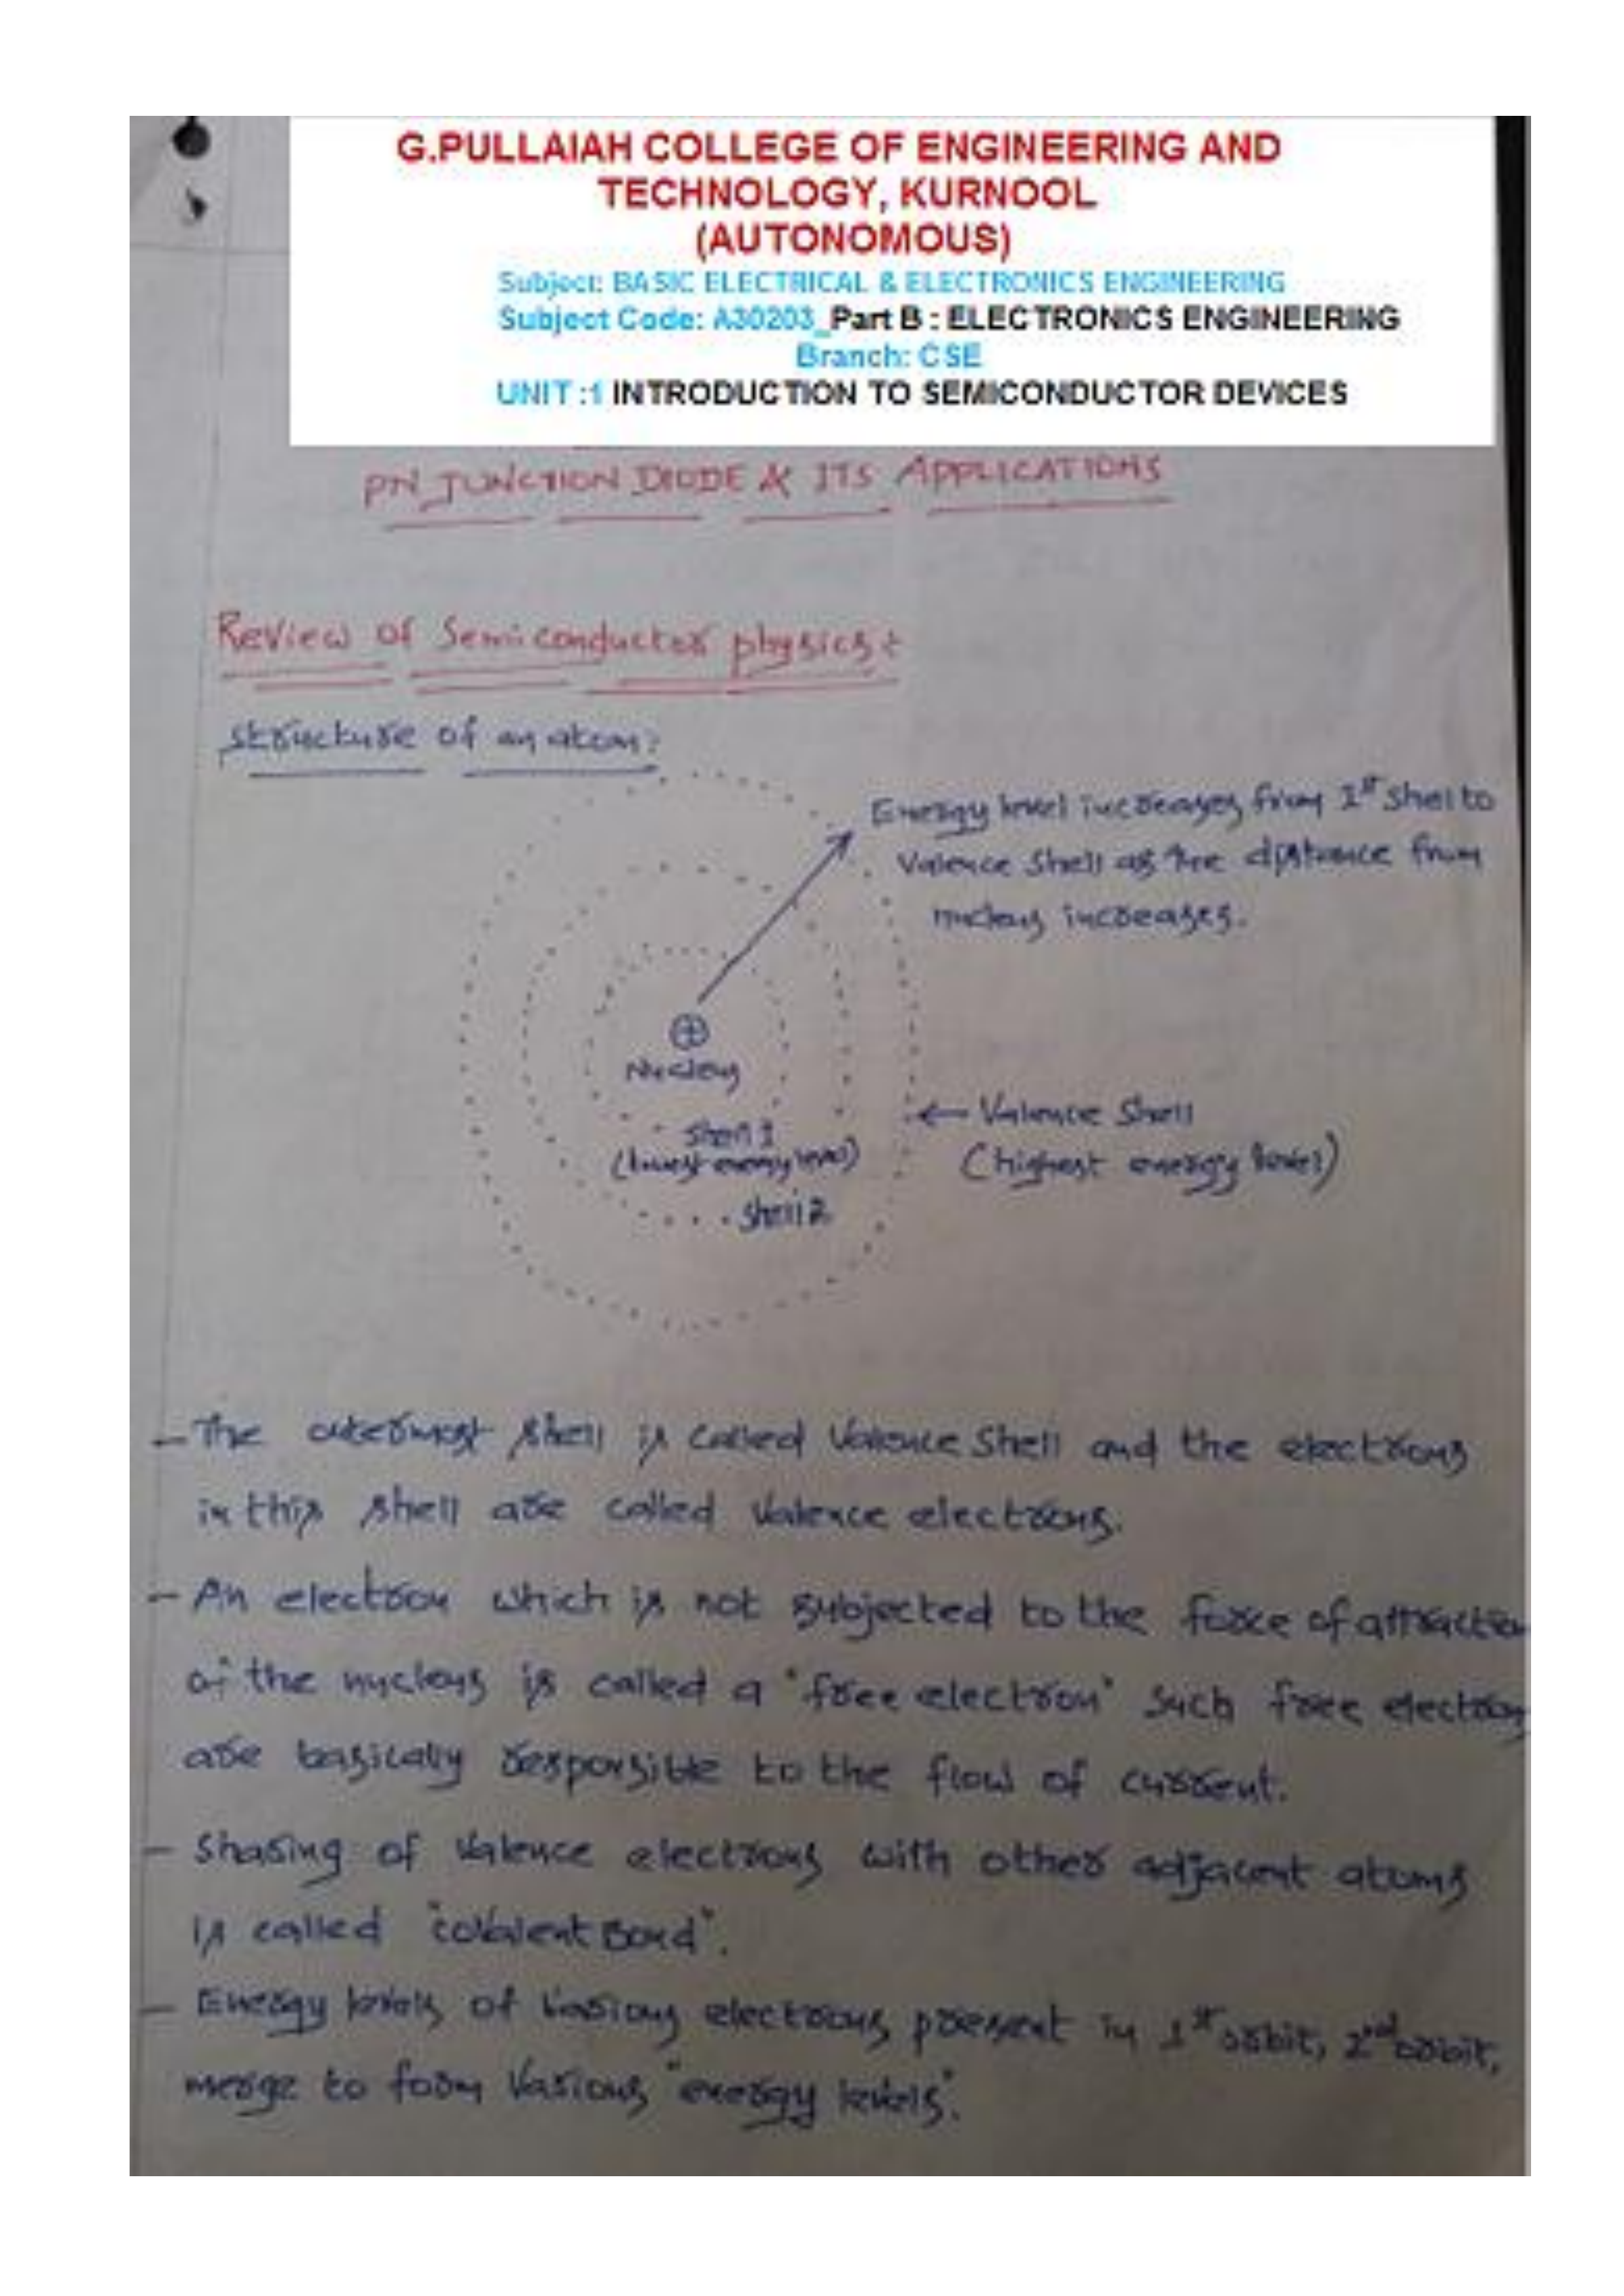 G.PULLAIAH COLLEGE OF ENGINEERING AND
TECHNOLOGY, KURNOOL
(AUTONOMOUS)
Subject: BASIC ELECTRICAL & ELECTRONICS ENGINEERING
Subject Code: A30203_Part B : ELECTRONICS ENGINEERING
Branch: CSE
UNIT :1 INTRODUCTION TO SEMICONDUCTOR DEVICES
PN JUNCTION DIODE & ITS APPLICATIONS
Review of Semiconductor physics:
structure of an atom:
Energy level increases from 1st Shell to
Valence Shell as the distance from
nucleus increases.
Nucleus
Shell 1
(lowest energy level)
Shell 2
← Valence Shell
(highest energy level)
- The outermost shell is called Valence Shell and the electrons
in this shell are called Valence electrons.
- An electron which is not subjected to the force of attraction
of the nucleus is called a "free electron" Such free electrons
are basically responsible to the flow of current.
- Sharing of Valence electrons with other adjacent atoms
is called "covalent Bond".
- Energy levels of Various electrons present in 1st orbit, 2nd orbit,
merge to form Various "energy levels".